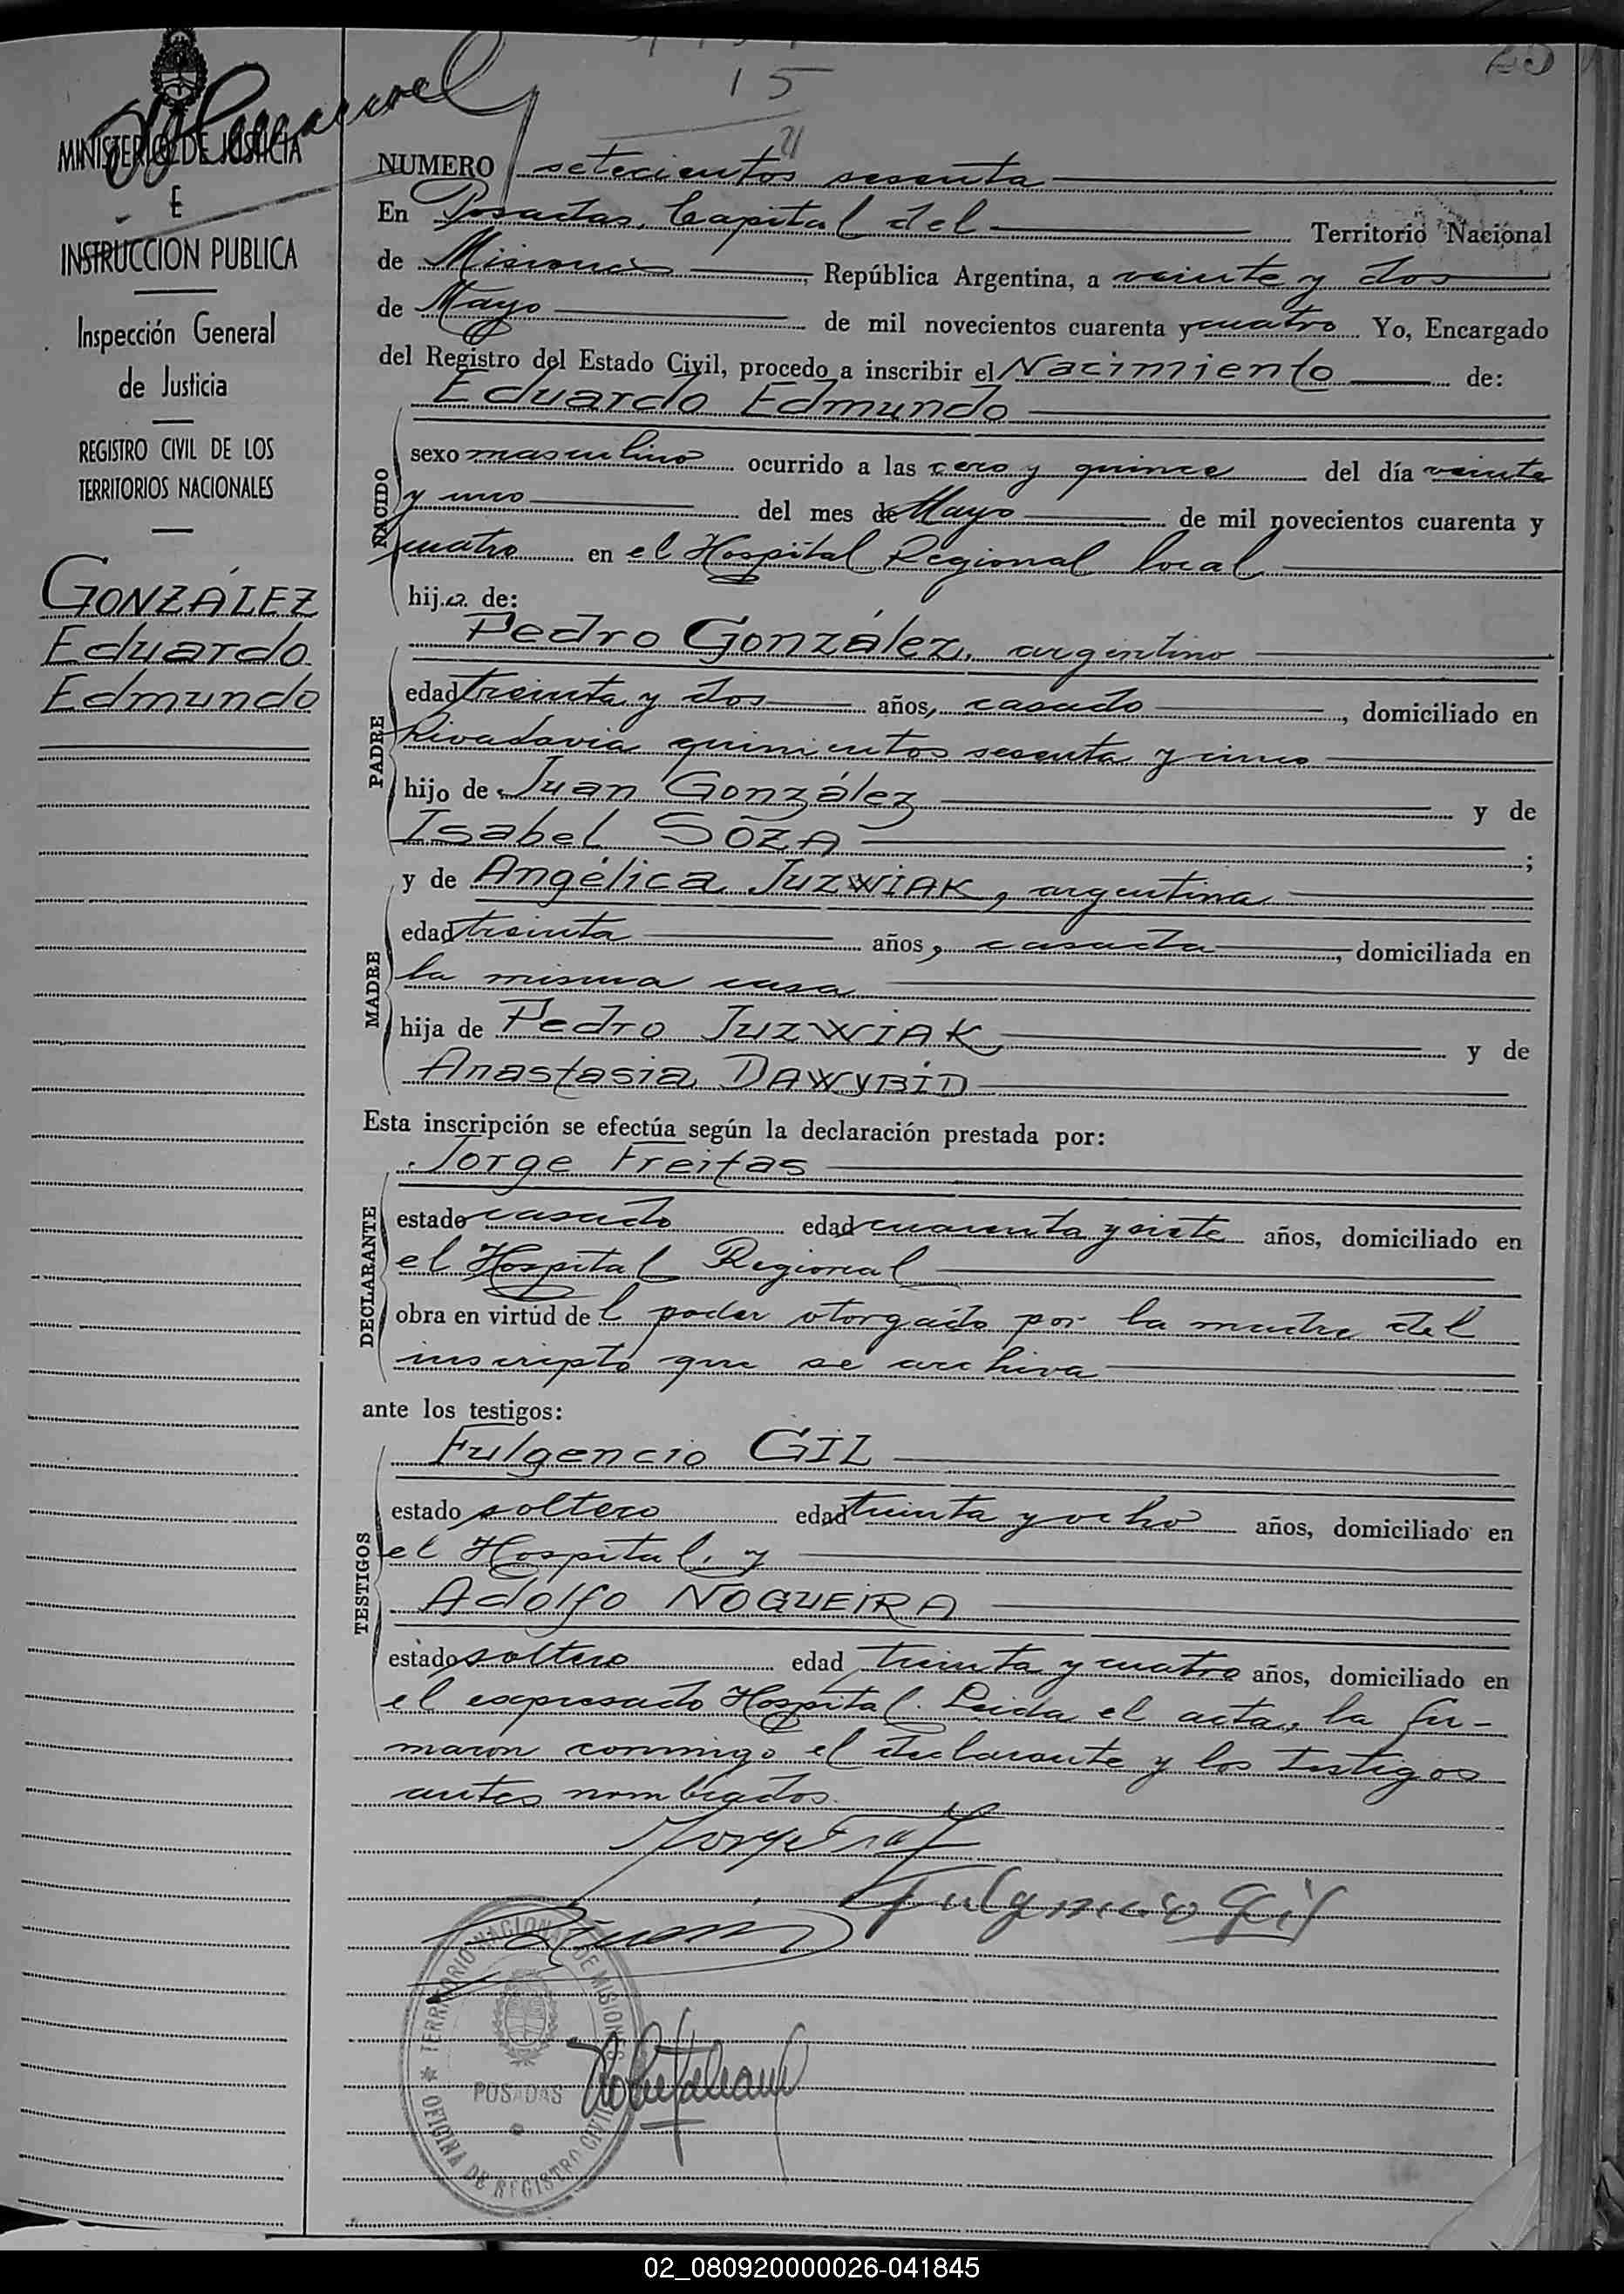 15
MINISTERIO DE JUSTICIA
E
INSTRUCCION PUBLICA
Inspección General
de Justicia
REGISTRO CIVIL DE LOS
TERRITORIOS NACIONALES
GONZÁLEZ
Eduardo
Edmundo
NUMERO setecientos sesenta
En Posadas, Capital del Territorio Nacional
de Misiones, República Argentina, a veinte y dos
de Mayo de mil novecientos cuarenta y cuatro Yo, Encargado
del Registro del Estado Civil, procedo a inscribir el Nacimiento de:
Eduardo Edmundo
NACIDO
sexo masculino ocurrido a las cero y quince del día veinte
y uno del mes de Mayo de mil novecientos cuarenta y
cuatro en el Hospital Regional local
hijo de:
Pedro González, argentino
PADRE
edad treinta y dos años, casado, domiciliado en
Rivadavia quinientos sesenta y cinco
hijo de Juan González y de
Isabel SOZA;
y de Angélica JUZWIAK, argentina
MADRE
edad treinta años, casada, domiciliada en
la misma casa
hija de Pedro JUZWIAK y de
Anastasia DAWYBID
Esta inscripción se efectúa según la declaración prestada por:
Jorge Freitas
DECLARANTE
estado casado edad cuarenta y siete años, domiciliado en
el Hospital Regional
obra en virtud del poder otorgado por la madre del
inscripto que se archiva
ante los testigos:
Fulgencio GIL
TESTIGOS
estado soltero edad treinta y ocho años, domiciliado en
el Hospital, y
Adolfo NOGUEIRA
estado soltero edad treinta y cuatro años, domiciliado en
el expresado Hospital. Leida el acta, la fir-
maron conmigo el declarante y los testigos
antes nombrados.
Jorge
Fulgencio Gil
TERRITORIO NACIONAL DE MISIONES
POSADAS
OFICINA DE REGISTRO CIVIL
02_080920000026-041845